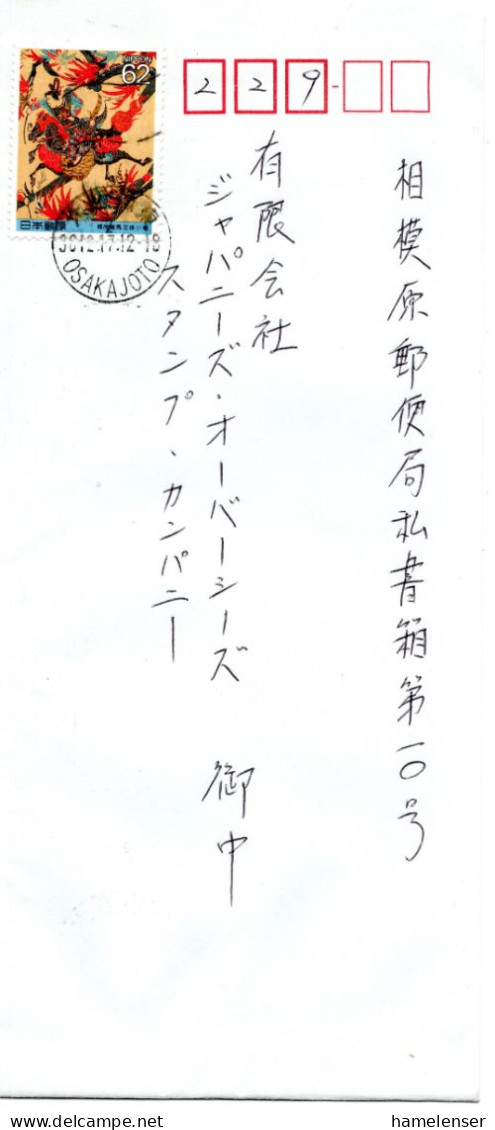 NIPPON
62
日本郵便
OSAKAJOTO
229-
相模原郵便局私書箱第一〇号
有限会社
ジャパニーズ・オーバーシーズ
スタンプ、カンパニー
御中
delcampe.net
hamelenser